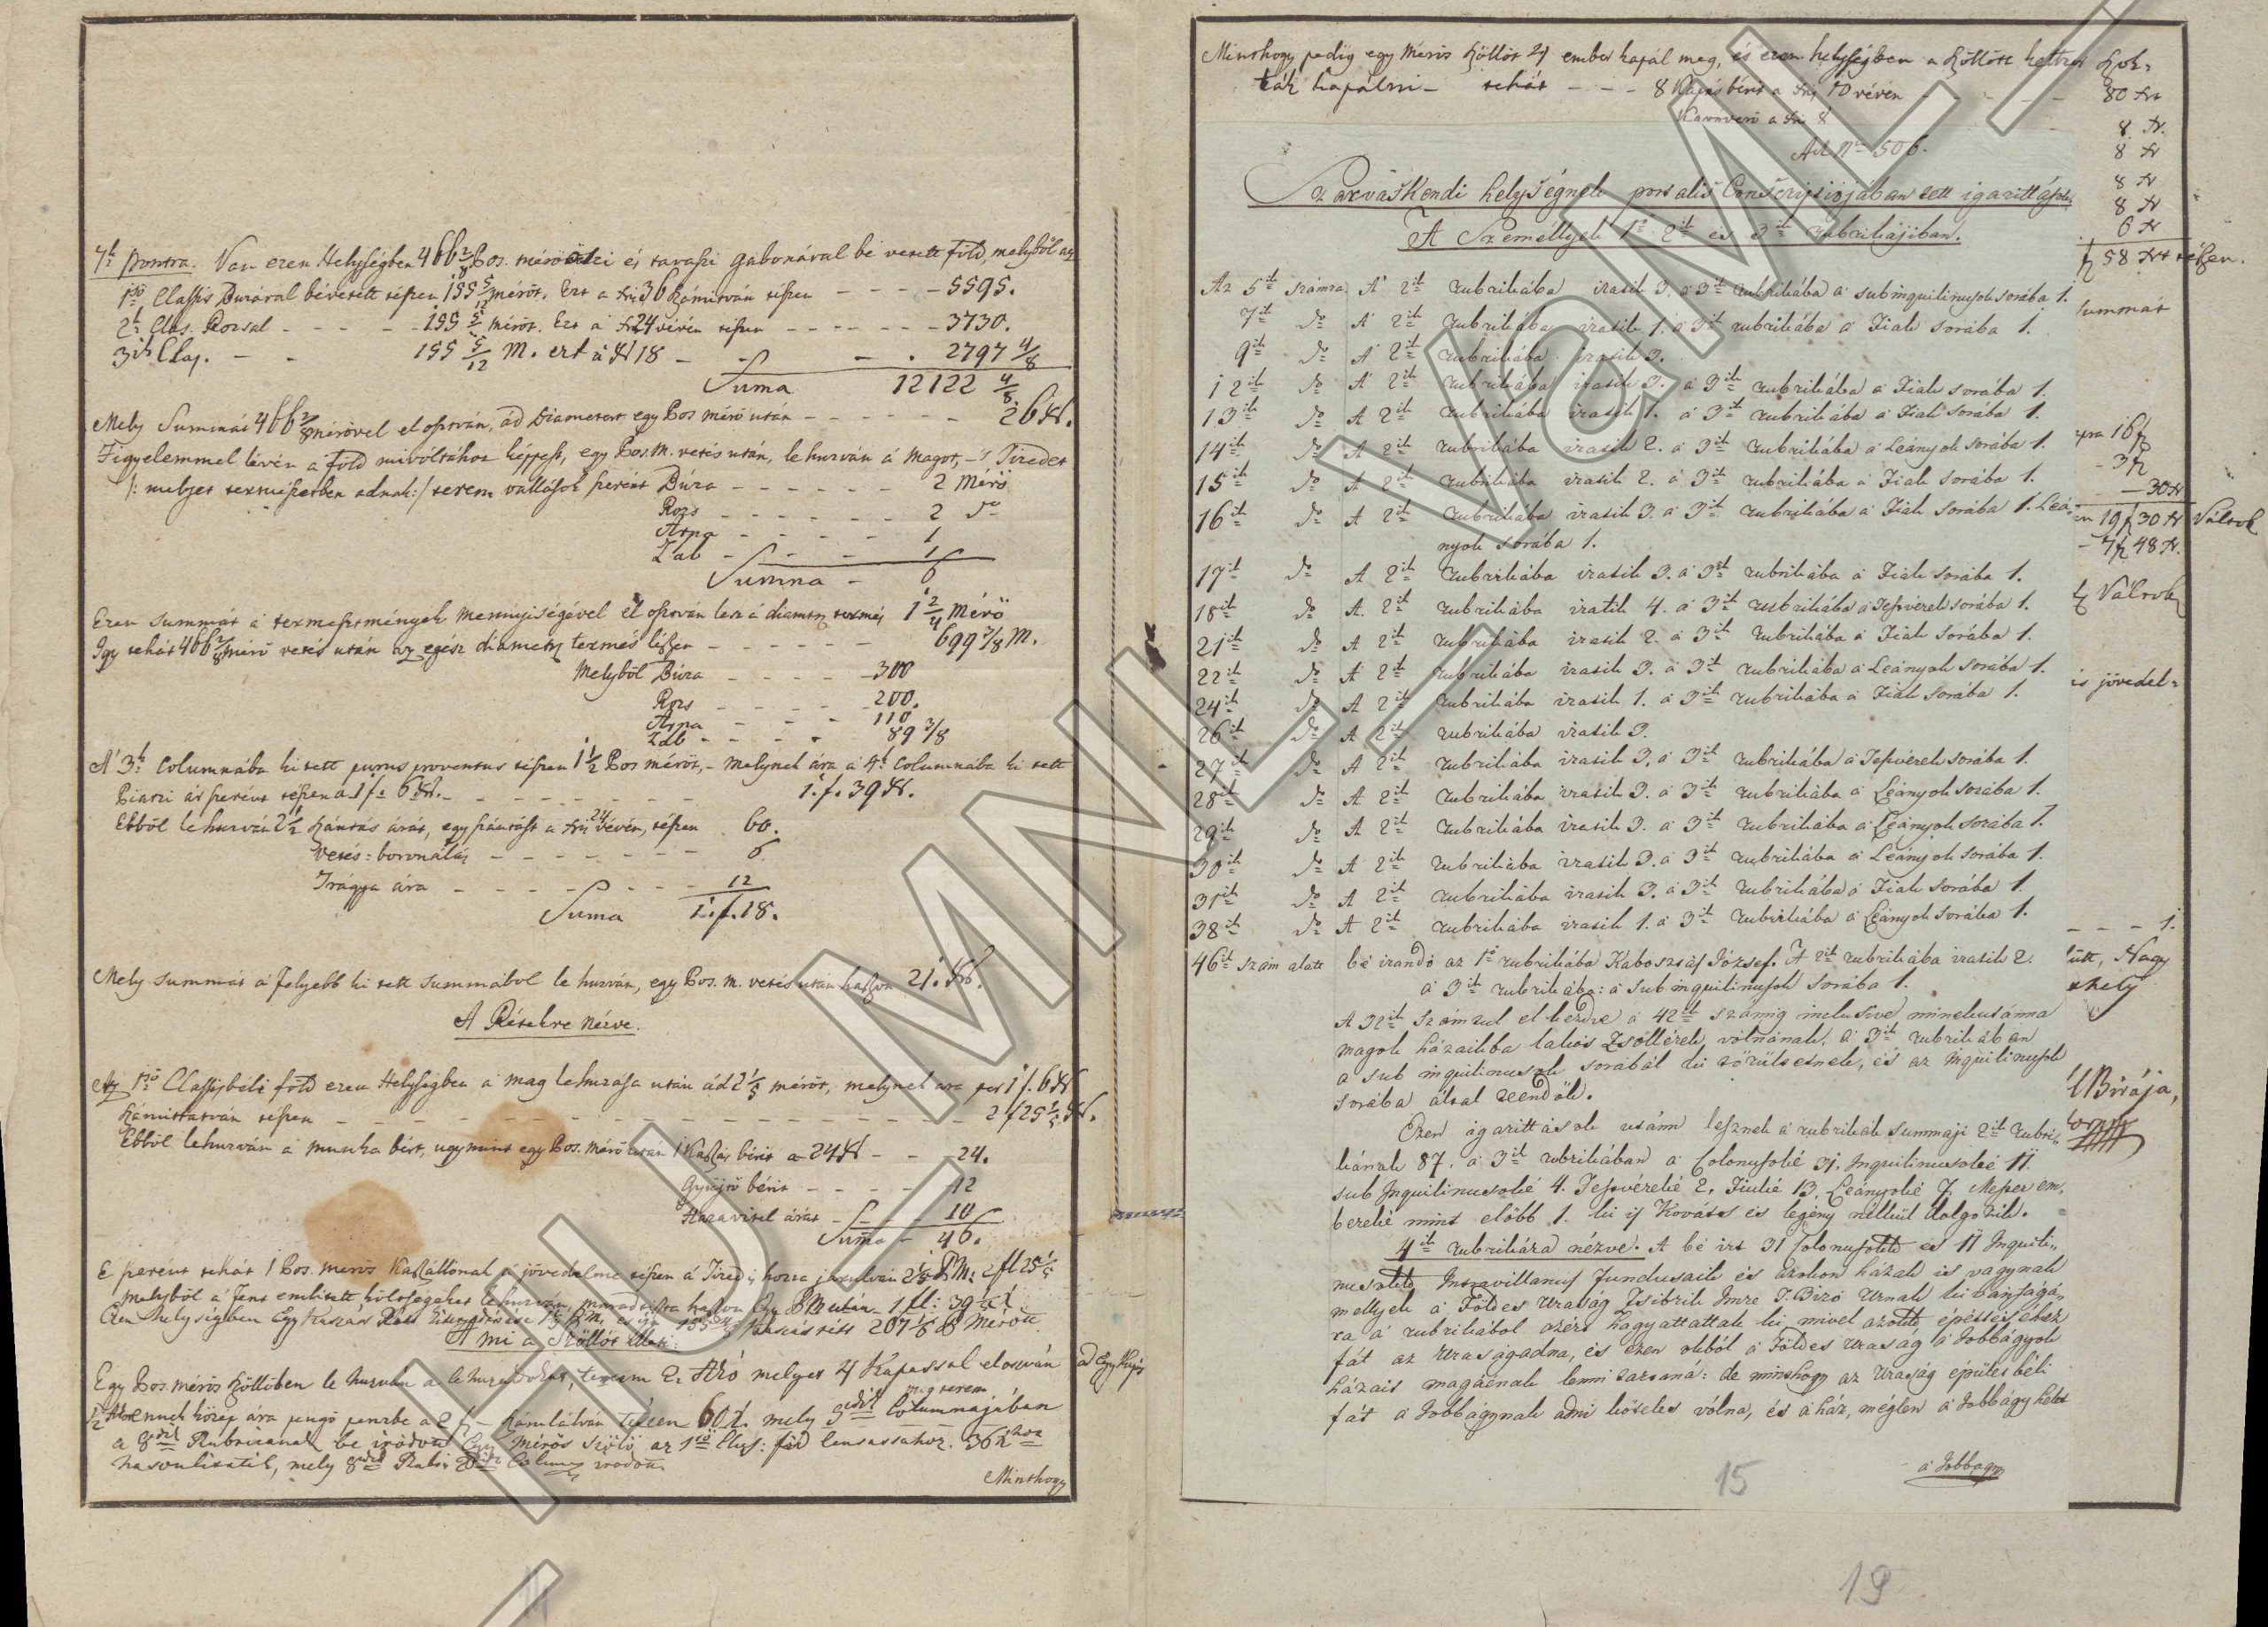 7k pontra. Van ezen Helységben 466 2/8 Pos. mérő őszi és tavaszi gabonával bé vetett föld, melyből az
1ső Classis Búzával bévetett tészen 155 5/12 mérőt. Ezt a kri 36 számítván tészen - - - - 5595.
2k Clas. Rozsal - - - - 155 5/12 mérőt. Ezt á kr 24 vévén tészen - - - - - - 3730.
3ik Clas. - - 155 5/12 M. ezt á Xr 18 - - - . 2797 4/8
Suma 12122 4/8
Mely Summát 466 2/8 mérővel elosztván, ád Diametert egy Pos mérő után - - - - - - 26 xr.
Figyelemmel lévén a föld mivóltához képpest, egy Pos. M. vetés után, le huzván á Magot, -s Tizedet
/: melyet termiszetben adnak :/ terem vallások szerént Búza - - - - - - 2 Mérő
Rozs - - - - - - 2 do
Árpa - - - - - 1
Zab - - - - 1
Summa - 6
Ezen summát á termesztmények mennyiségével el osztván lesz á diametr termés 1 2/4 Mérő
Igy tehát 466 2/8 mérő vetés után az egész diametr termés lészen - - - - - - 699 3/8 M.
Melyből Búza - - - - - 300
Rozs - - - - - 200.
Árpa - - - - 110
Zab - - - - 89 3/8
A' 3k Columnába ki tett purus proventus tészen 1 1/2 Pos mérőt, - melynek ára a 4k Columnába ki tett
Piatzi ár szerént tészen a 1 f. 6 xr. - - - - - - - 1. f. 39 xr.
Ebből le huzván 2 1/2 szántás árát, egy szántást a kri 24 vévén, tészen 60.
Vetés = boronálás - - - - - - - 6
Trágya ára - - - - - - - - 12
Suma 1. f. 18.
Mely summát á felyebb ki tett summából le huzván, egy Pos. M. vetés után haszon 21. xr.
A Rétekre nézve.
Az 1ső Classisbéli föld ezen Helységben á mag lehuzása után ád 2 1/5 mérőt, melynek ára per 1 f. 6 xr
számittatván tészen - - - - - - - - - - - - - - - - 2 f 25 1/5 xr.
Ebből lehuzván á munka bért, ugymint egy Pos. Mérő után 1 Kaszás bérit a 24 xr - - - 24.
Gyüjtő bérit - - - - - 12
Haza vitel árát - - - - 10
Suma - 46.
E szerént tehát 1 Pos. mérős Kaszállónak á jövedelme tészen
Melyből á fent említett költségeket lehuzván, marad tiszta haszon Egy PM után - 1 fl: 39 1/5 x
Ezen helységben Egy Kaszás Rét
A mi a Szöllőt illeti:
Egy Pos. mérős szöllőben le huzván a lehuzandókat, terem 2 Akó melyet 4 Kapással elosztván ád Egy Kapás
1/2 Akot ennek közep ára pengő penzbe a 2 f - számlálván tészen 60 x. mely 3dik Columnájában
a 8dik Rubricának be iródott Egy mérős szölö az 1ső Clas: föld census sahoz. 36 x hoz
hasonlitatik, mely 8dik Rubr
Minthogy
Minthogy pedig egy Mérős szöllőt 4 ember kapál meg, és ezen helységben a szöllőt kettzer szok=
ták kapálni - tehát - - - 8 Kapás bérit a kri 10 vévén - - - - - 80 kr
Karoverő a kri 8
8 kr.
8 kr
8 kr
8 kr
6 kr
58 kr tészen.
Ad Nro 506.
Szarvaskendi helységnek portalis Conscriptiojában tett igazittások
A Személlyek 1ő 2ik és 3ik rubrikájiban.
Az 5ik számra A' 2ik rubrikába iratik 3. á 3ik rubrikába á subinquilinusok sorába 1.
7ik do A' 2ik rubrikába iratik 1. á 3ik rubrikába á Fiak sorába 1.
9ik do A' 2ik rubrikába iratik 3.
12ik do A' 2ik rubrikába iratik 3. á 3ik rubrikába á Fiak sorába 1.
13ik do A 2ik rubrikába iratik 1. á 3ik rubrikába á Fiak sorába 1.
14ik do A 2ik rubrikába iratik 2. á 3ik rubrikába á Leányok sorába 1.
15ik do A 2ik rubrikába iratik 2. á 3ik rubrikába á Fiak sorába 1.
16ik do A 2ik rubrikába iratik 3. á 3ik rubrikába á Fiak sorába 1. Leá=
nyok sorába 1.
17ik do A 2ik rubrikába iratik 3. á 3ik rubrikába á Fiak sorába 1.
18ik do A 2ik rubrikába iratik 4. á 3ik rubrikába á Testvérek sorába 1.
21ik do A 2ik rubrikába iratik 2. á 3ik rubrikába á Fiak sorába 1.
22ik do A 2ik rubrikába iratik 3. á 3ik rubrikába á Leányok sorába 1.
24ik do A 2ik rubrikába iratik 1. á 3ik rubrikába á Fiak sorába 1.
26ik do A 2ik rubrikába iratik 3.
27ik do A 2ik rubrikába iratik 3. á 3ik rubrikába á Testvérek sorába 1.
28ik do A 2ik rubrikába iratik 3. á 3ik rubrikába á Leányok sorába 1.
29ik do A 2ik rubrikába iratik 3. á 3ik rubrikába á Leányok sorába 1.
30ik do A 2ik rubrikába iratik 3. á 3ik rubrikába á Leányok sorába 1.
31ik do A 2ik rubrikába iratik 3. á 3ik rubrikába á Fiak sorába 1.
38ik do A 2ik rubrikába iratik 1. á 3ik rubrikába á Leányok sorába 1.
46ik szám alatt bé irandó az 1ő rubrikába József. A 2ik rubrikába iratik 2.
á 3ik rubrikába: á subinquilinusok sorába 1.
A 32ik Számtul el kezdve á 42ik számig inclusive minekutánna
magok házaikba lakos Zsöllérek volnának. á 3ik rubrikában
a sub inquilinusok sorából ki törültetnek, és az inquilinusok
sorába által teendők.
Ezen igazittások utánn lesznek á rubrikák summáji 2ik rubri=
kának 87. á 3ik rubrikában a Colonusoké 31. Inquilinusoké 11.
sub Inquilinusoké 4. Testvéreké 2. Fiúké 13. Leányoké 7. Mester em=
bereké mint előbb 1. ki is Kováts és legény nélkül dolgozik.
4ik rubrikára nézve. A bé irt 31 Colonusok és 11 Inquili=
nusok Intravillanus Fundusaik és azokon házak is vagynak
mellyek á Földes Uraság Tsibrik Imre T. Biró Urnak kivánságá=
ra á rubrikából azért hagyattattak ki, mivel azok építtéséhez
fát az Uraság adna, és ezen okból á Földes Uraság á Jobbágyok
házait magáénak lenni tartaná: de minthogy az Uraság épületbéli
fát á Jobbágynak adni köteles vólna, és á ház, méglen á Jobbágy helet
á Jobbágy
summát
16 f
- 3 f
- 30 kr
19 f 30 kr Váltok
- 7 f 48 kr.
Váltok
is jövedel=
- - - 1.
Nagy
Birája,
15
19
HU MNL VaML